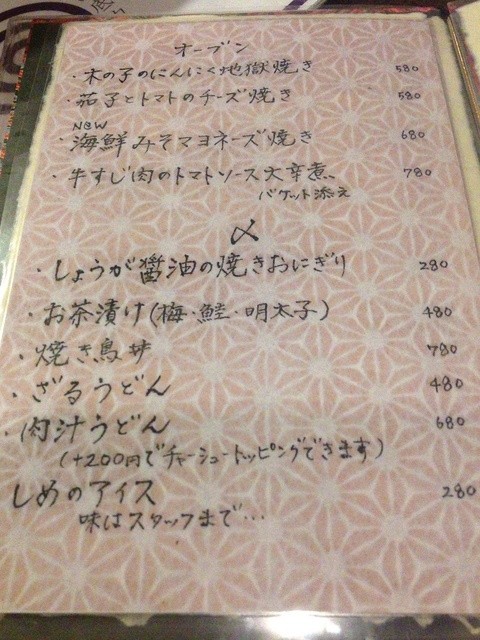 オーブン
・木の子のにんにく地獄焼き 580
・茄子とトマトのチーズ焼き 580
NEW
・海鮮みそマヨネーズ焼き 680
・牛すじ肉のトマトソース大辛煮 780
バケット添え
〆
・しょうが醤油の焼きおにぎり 280
・お茶漬け(梅・鮭・明太子) 480
・焼き鳥丼 780
・ざるうどん 480
・肉汁うどん 680
(+200円でチャーシュートッピングできます)
しめのアイス 280
味はスタッフまで…